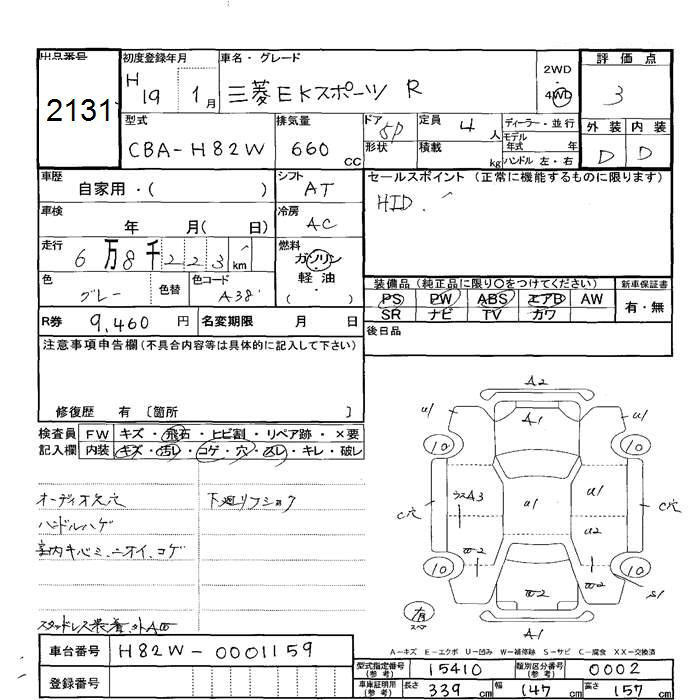 出品番号 2131
初度登録年月 H19 1月
車名・グレード 三菱EKスポーツ R
2WD・4WD
評価点 3
型式 CBA-H82W
排気量 660 CC
ドア 形状 5D
定員 4 人
積載 kg
ディーラー・並行
モデル年式 年式
ハンドル 左・右
外装 D
内装 D
車歴 自家用・( )
シフト AT
セールスポイント (正常に機能するものに限ります)
HID.
車検 年 月( 日)
冷房 AC
走行 6万8千223km
燃料 ガソリン 軽油 ( )
色 グレー
色替
色コード A38
装備品 (純正品に限り〇をつけてください)
PS PW ABS エアB AW
SR ナビ TV カワ
新車保証書 有・無
R券 9,460 円
名変期限 月 日
後日品
注意事項申告欄 (不具合内容等は具体的に記入して下さい)
修復歴 有 [箇所 ]
検査員記入欄
FW キズ・飛石・ヒビ割・リペア跡・×要
内装 キズ・汚レ・コゲ・穴・スレ・キレ・破レ
オーディオ欠穴
下廻リフショク
ハンドルハゲ
室内キバミ、ニオイ、コゲ
スタッドレス装着
A2
u1 A1 u1
10 10
ウスA3 u1 u1
C穴 C穴
u2
w2 w2
10 10
w2 w2 S1
有 スペ
A1
A-キズ E-エクボ U-凹み W-補修跡 S-サビ C-腐食 XX-交換済
車台番号 H82W-0001159
登録番号
型式指定番号(参考) 15410
類別区分番号(参考) 0002
車庫証明用(参考) 長さ 339 cm 幅 147 cm 高さ 157 cm